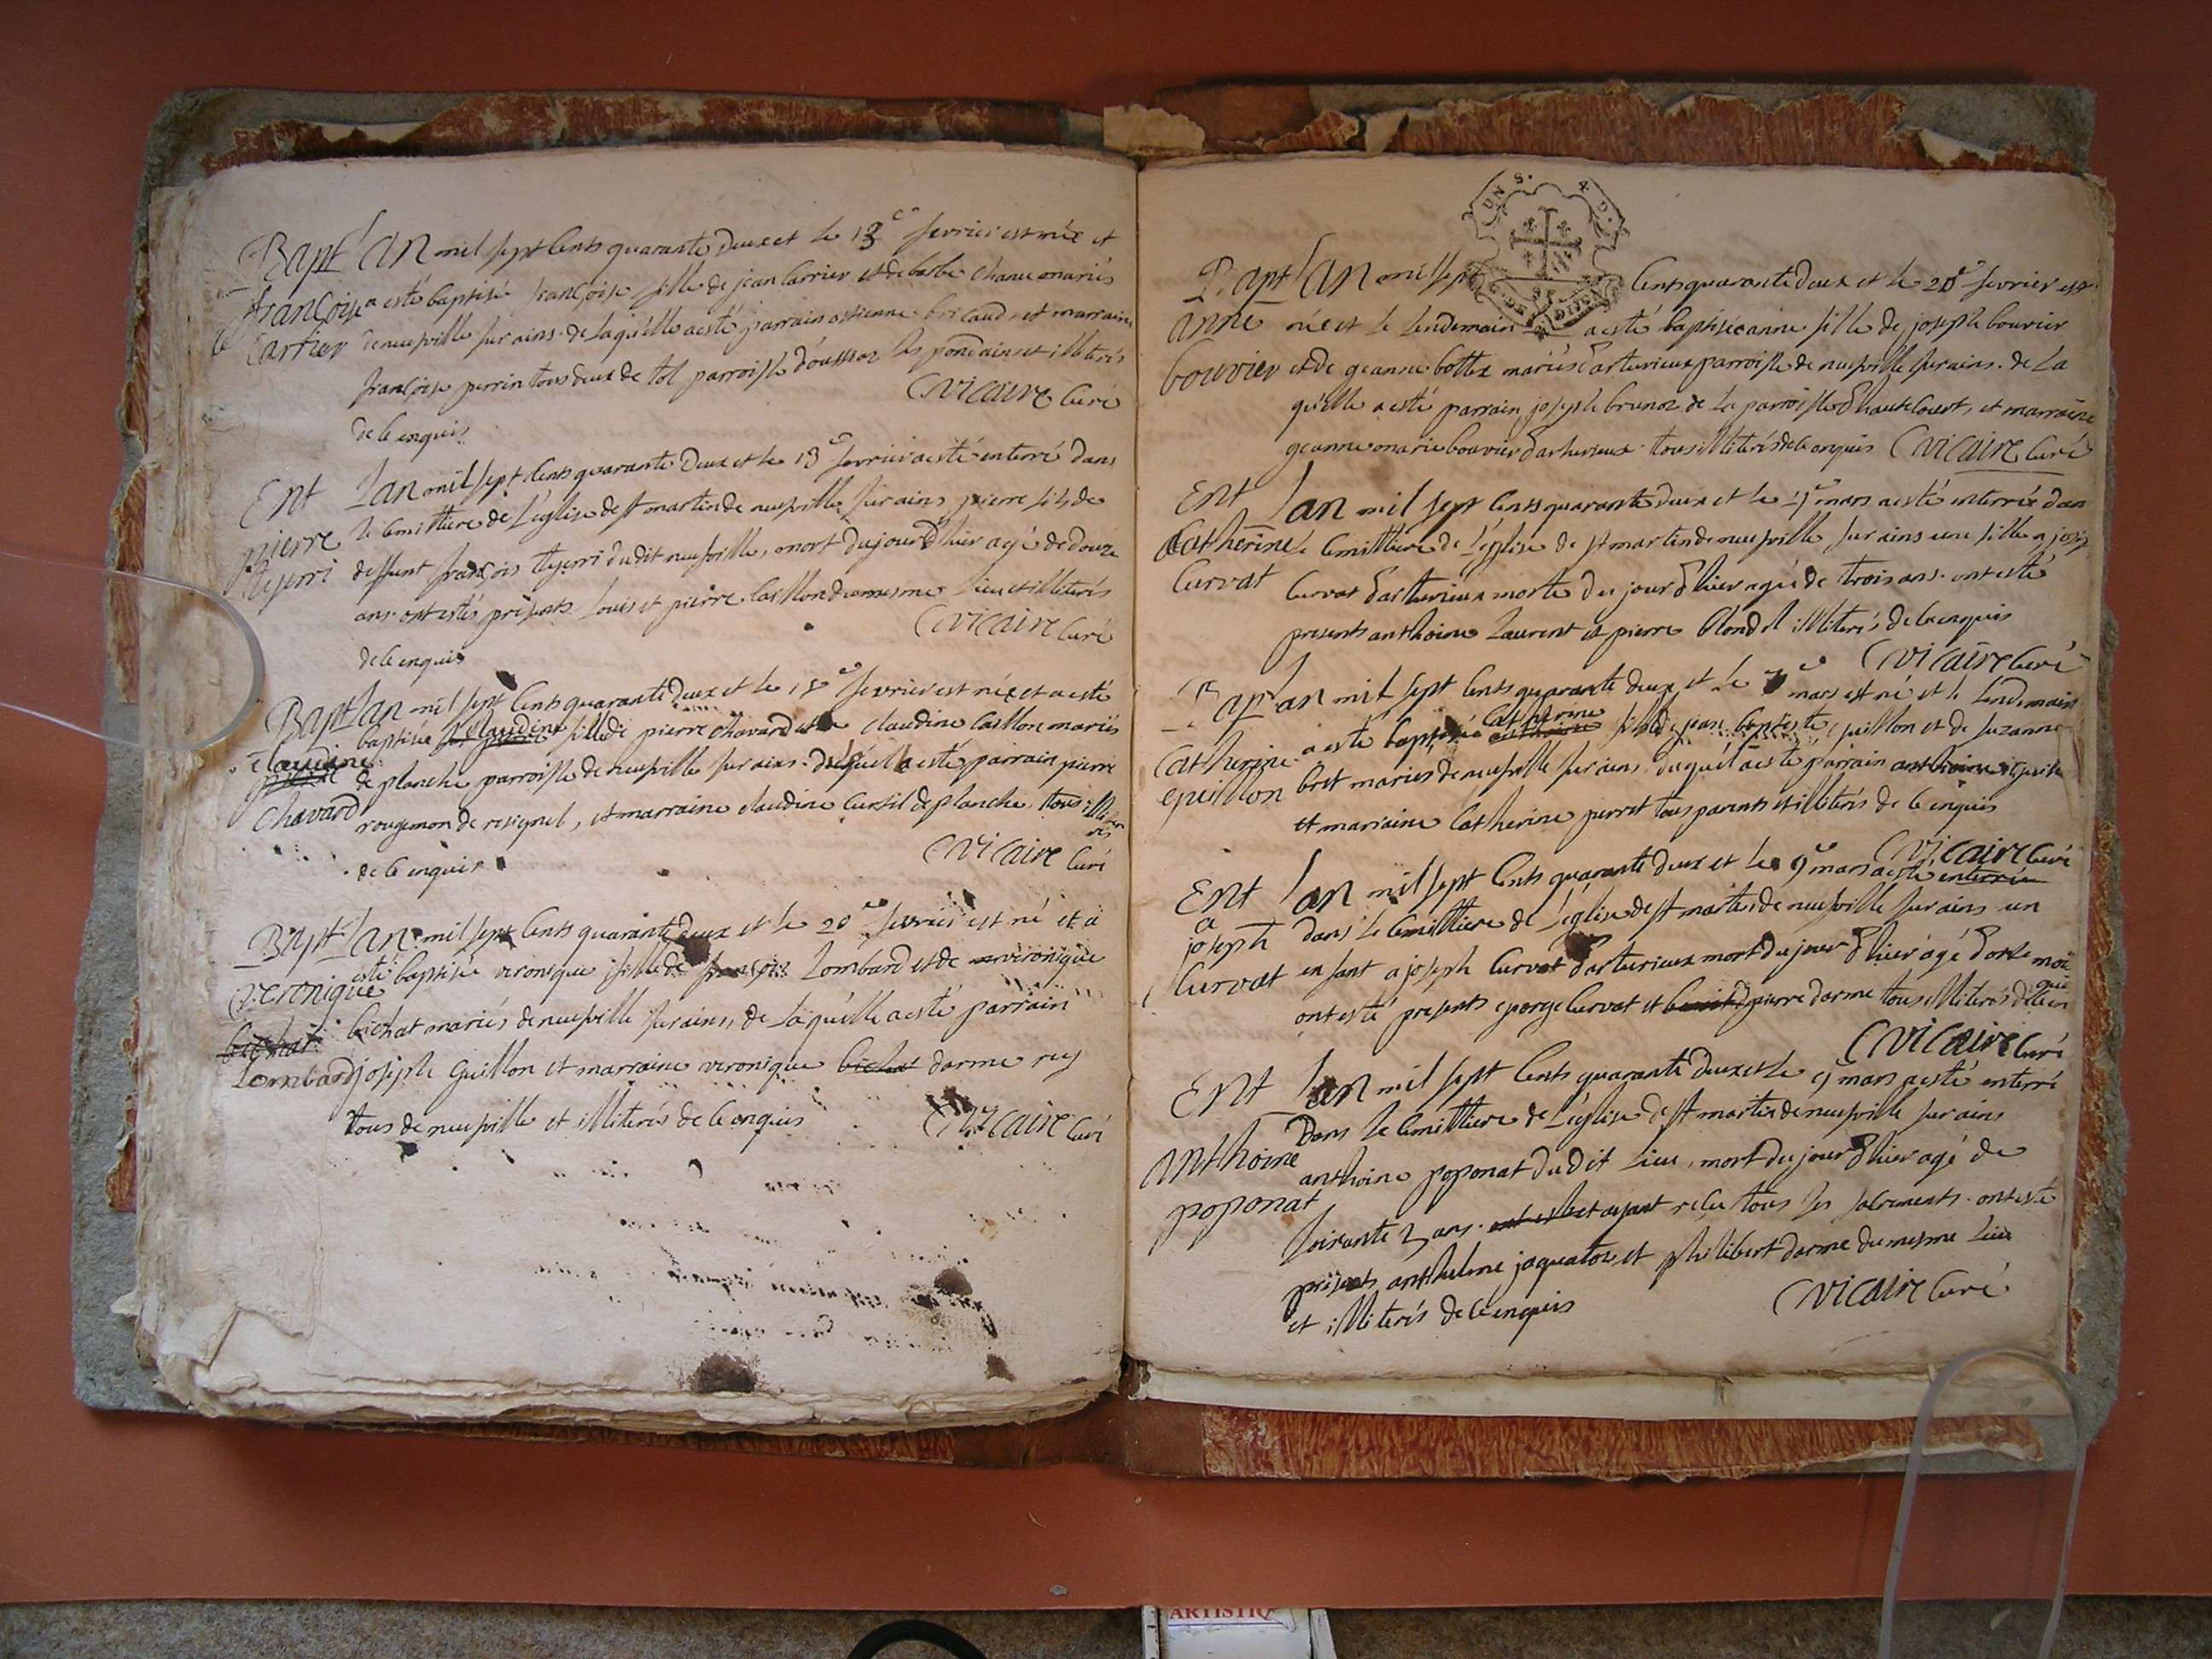 Bapt Lan mil sept cents quarante deux et le 13e fevrier est née et
françoise a esté baptisé françoise fille de jean carrier et de barbe chane mariés
carrier de neufville sur ains. de laquelle a esté parrain estienne bricaud et marraine
françoise perrin tous deux de tol parroisse d'oussia les pondains et illiterés
de ce enquis Vicaire Curé
Ent Lan mil sept cents quarante deux et le 13e fevrier a esté enterré dans
pierre le cemittiere de l'église de st martin de neufville sur ains pierre fils de
teyssi deffunt françois dudit neufville, mort du jour d'hier agé de douze
ans. ont estés présents louis et pierre caillon du mesme lieu et illiterés
de ce enquis Vicaire Curé
Bapt Lan mil sept cents quarante deux et le 18e fevrier est née et a esté
baptisée claudine fille de pierre chavard et de claudine caillon mariés
claudine de planche parroisse de neufville sur ains. duquel a esté parrain pierre
chavard rougemon de resignel, et marraine claudine cursil de planche. tous illiterés
de ce enquis Vicaire Curé
Bapt Lan mil sept cents quarante deux et le 20e fevrier est né et a
esté baptisée veronique fille de françois Lombard et de veronique
veronique
bichat bichat mariés de neufville sur ains, de laquelle a esté parrain
Lombard joseph Guillon et marraine veronique bichat darme rey
tous de neufville et illiterés de ce enquis Vicaire Curé
UN S. 4 D.
G. DE DIJON
Bapt Lan mil sept cents quarante deux et le 20e fevrier est
anne née et le lendemain a esté baptisée anne fille de joseph bouvier
bouvier et de geanne bottex mariés d'arturieux parroisse de neufville sur ains. de la
quelle a esté parrain joseph brunox de la parroisse d'hautecourt, et marraine
geanne marie bouvier d'arturieux. tous illiterés de ce enquis Vicaire Curé
Ent Lan mil sept cents quarante deux et le mars a esté enterrée dan
Catherine le cemittiere de l'église de st martin de neufville sur ains une fille a joseph
Curvat Curvat d'arturieux morte du jour d'hier agée de trois ans. ont esté
presents anthoine Laurent et pierre blondel illiterés de ce enquis
Vicaire Curé
Bap Lan mil sept cents quarante deux et le 7e mars est né et le lendemain
a esté baptisée anthoine catherine fille de jean baptiste epuillon et de suzanne
catherine bret mariés de neufville sur ains. duquel a esté parrain anthoine
epuillon et marraine catherine perret tous parents et illiterés de ce enquis
Vicaire Curé
Ent Lan mil sept cents quarante deux et le 9e mars a esté enterrée
a dans le cemittiere de l'église de st martin de neufville sur ains un
joseph enfant a joseph Curvat d'arturieux mort du jour d'hier agé d'onze mois
Curvat ont esté presents george Curvat et pierre darme tous illiterés de ce enquis
Vicaire Curé
Ent Lan mil sept cents quarante deux et le 9 mars a esté enterré
dans le cemittiere de l'église de st martin de neufville sur ains
anthoine anthoine poponat dudit lieu, mort du jour d'hier agé de
poponat soixante 3 ans. ayant reçu tous les sacrements. ont esté
présents anthelme jaquatox et philibert darme du mesme lieu
et illiterés de ce enquis Vicaire Curé
ARTISTIQ